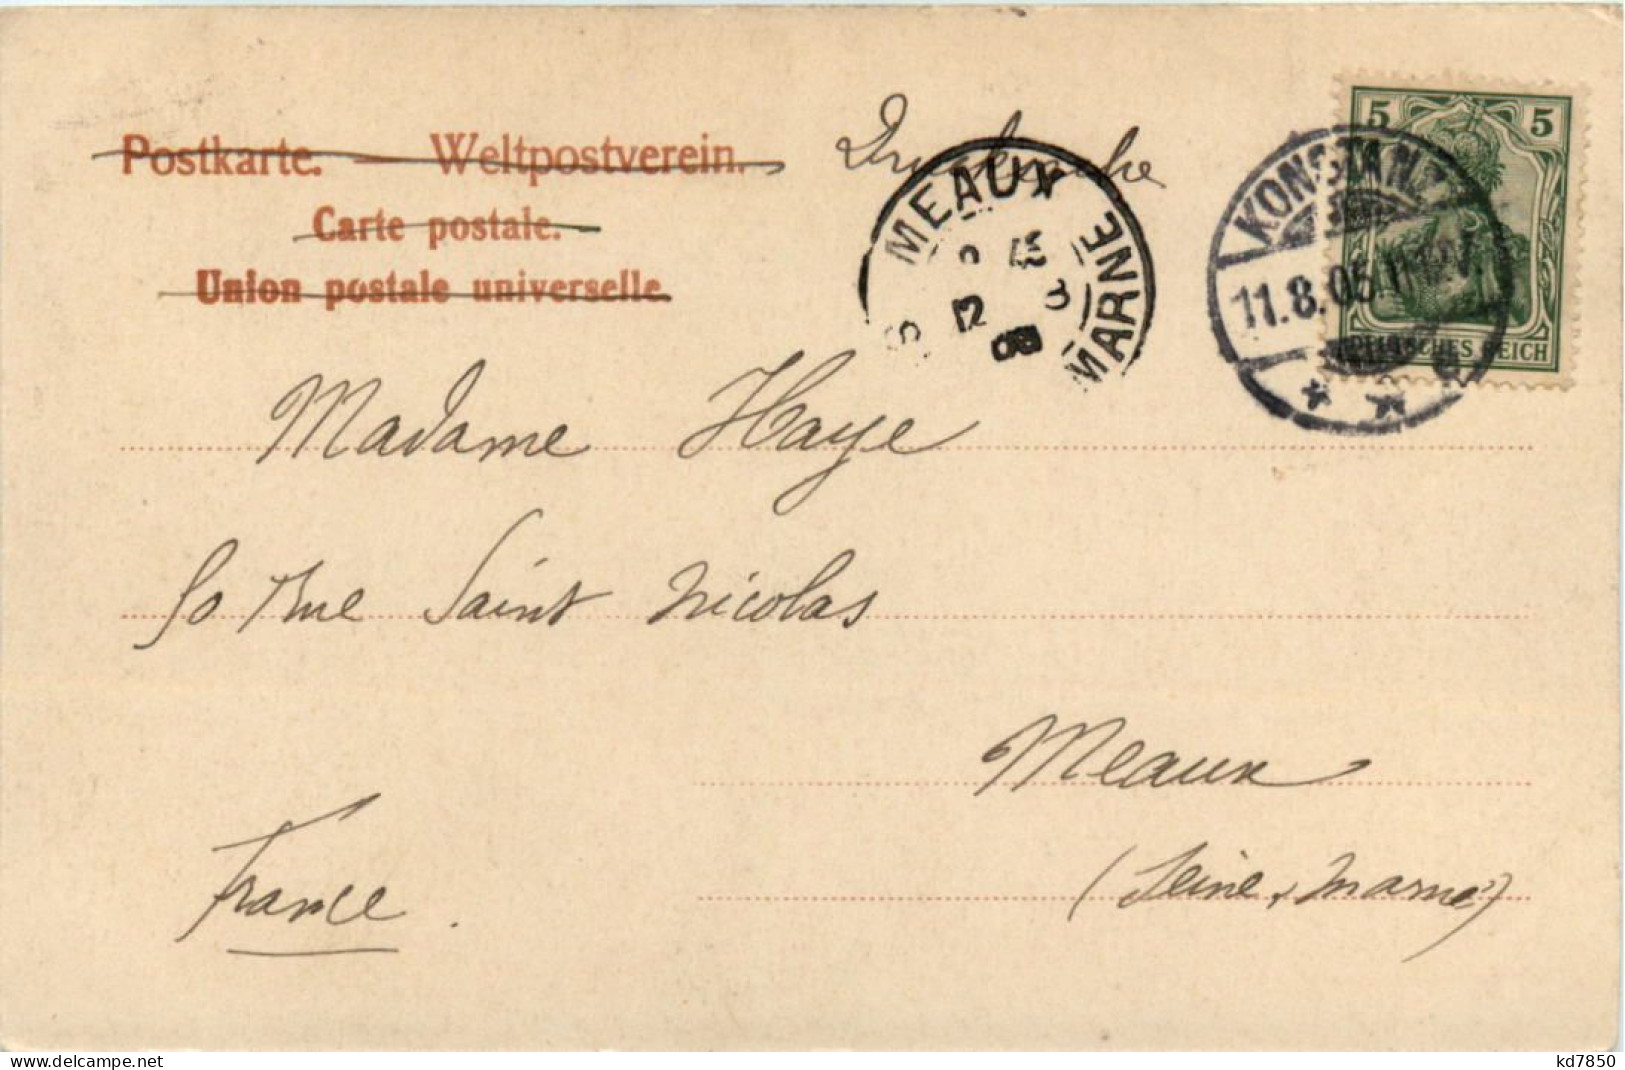 Postkarte. — Weltpostverein.
Carte postale.
Union postale universelle.
Drucksache
MEAUX
MARNE
12 8
KONSTANZ
11.8.05.
5 5
DEUTSCHES REICH
Madame Haye
50 rue Saint Nicolas
Meaux
(Seine & Marne)
France.
www.delcampe.net
kd7850